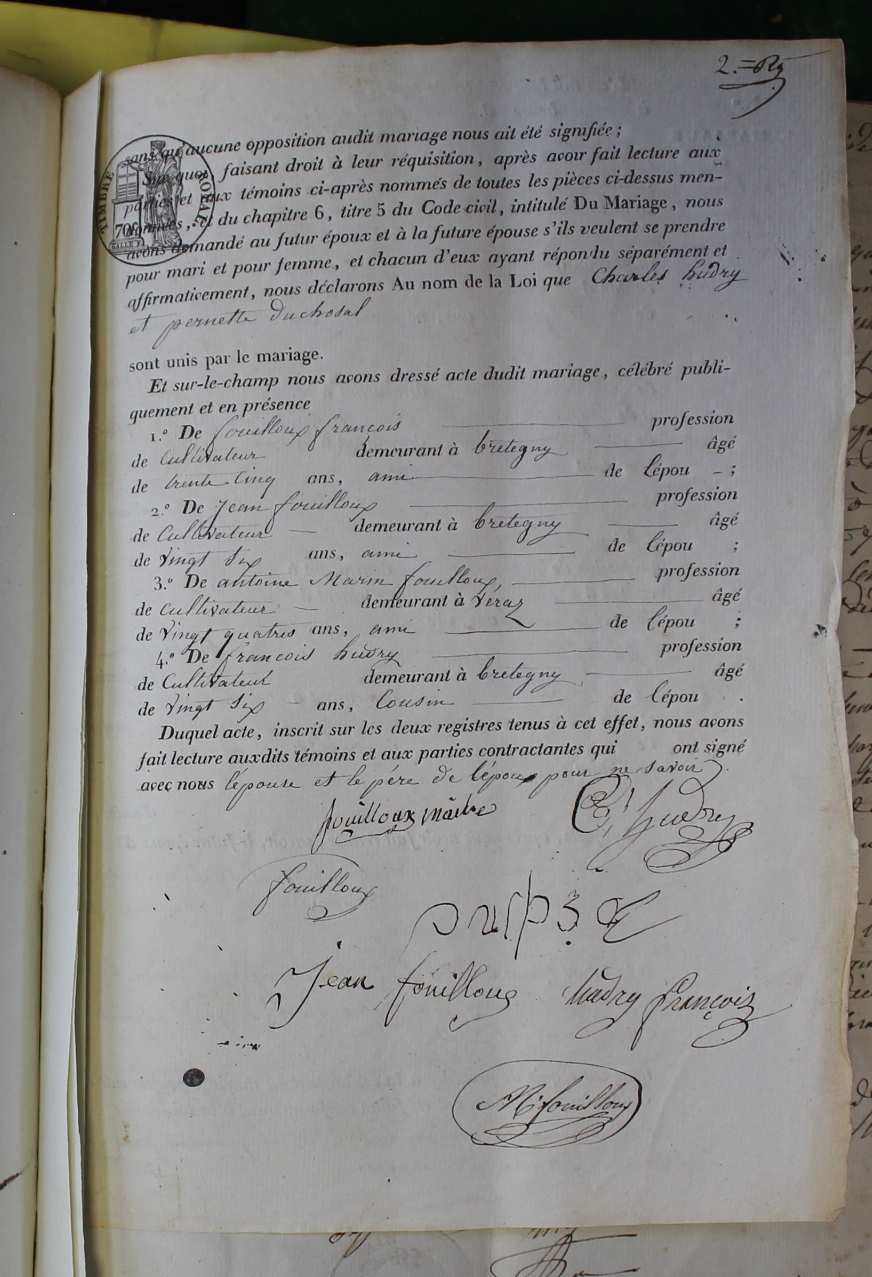 2.=
sans qu'aucune opposition audit mariage nous ait été signifiée ;
Sur quoi, faisant droit à leur réquisition, après avoir fait lecture aux
parties et aux témoins ci-après nommés de toutes les pièces ci-dessus men-
tionnées, et du chapitre 6, titre 5 du Code civil, intitulé Du Mariage, nous
avons demandé au futur époux et à la future épouse s'ils veulent se prendre
pour mari et pour femme, et chacun d'eux ayant répondu séparément et
affirmativement, nous déclarons Au nom de la Loi que Charles hudry
et pernette duchosal
sont unis par le mariage.
Et sur-le-champ nous avons dressé acte dudit mariage, célébré publi-
quement et en présence
1.º De fouilloux françois profession
de Cultivateur demeurant à bretegny âgé
de trente Cinq ans, ami de lépou ;
2.º De Jean fouilloux profession
de Cultivateur demeurant à bretegny âgé
de vingt Six ans, ami de lépou ;
3.º De antoine Marin fouilloux profession
de Cultivateur demeurant à véraz âgé
de vingt quatres ans, ami de lépou ;
4.º De françois hudry profession
de Cultivateur demeurant à bretegny âgé
de vingt Six ans, Cousin de lépou .
Duquel acte, inscrit sur les deux registres tenus à cet effet, nous avons
fait lecture auxdits témoins et aux parties contractantes qui ont signé
avec nous lépouse et le père de lépoux pour ne savoir.
TIMBRE ROYAL
70
fouilloux maire
Hudry
fouilloux
Jean fouilloux hudry françois
M. fouilloux